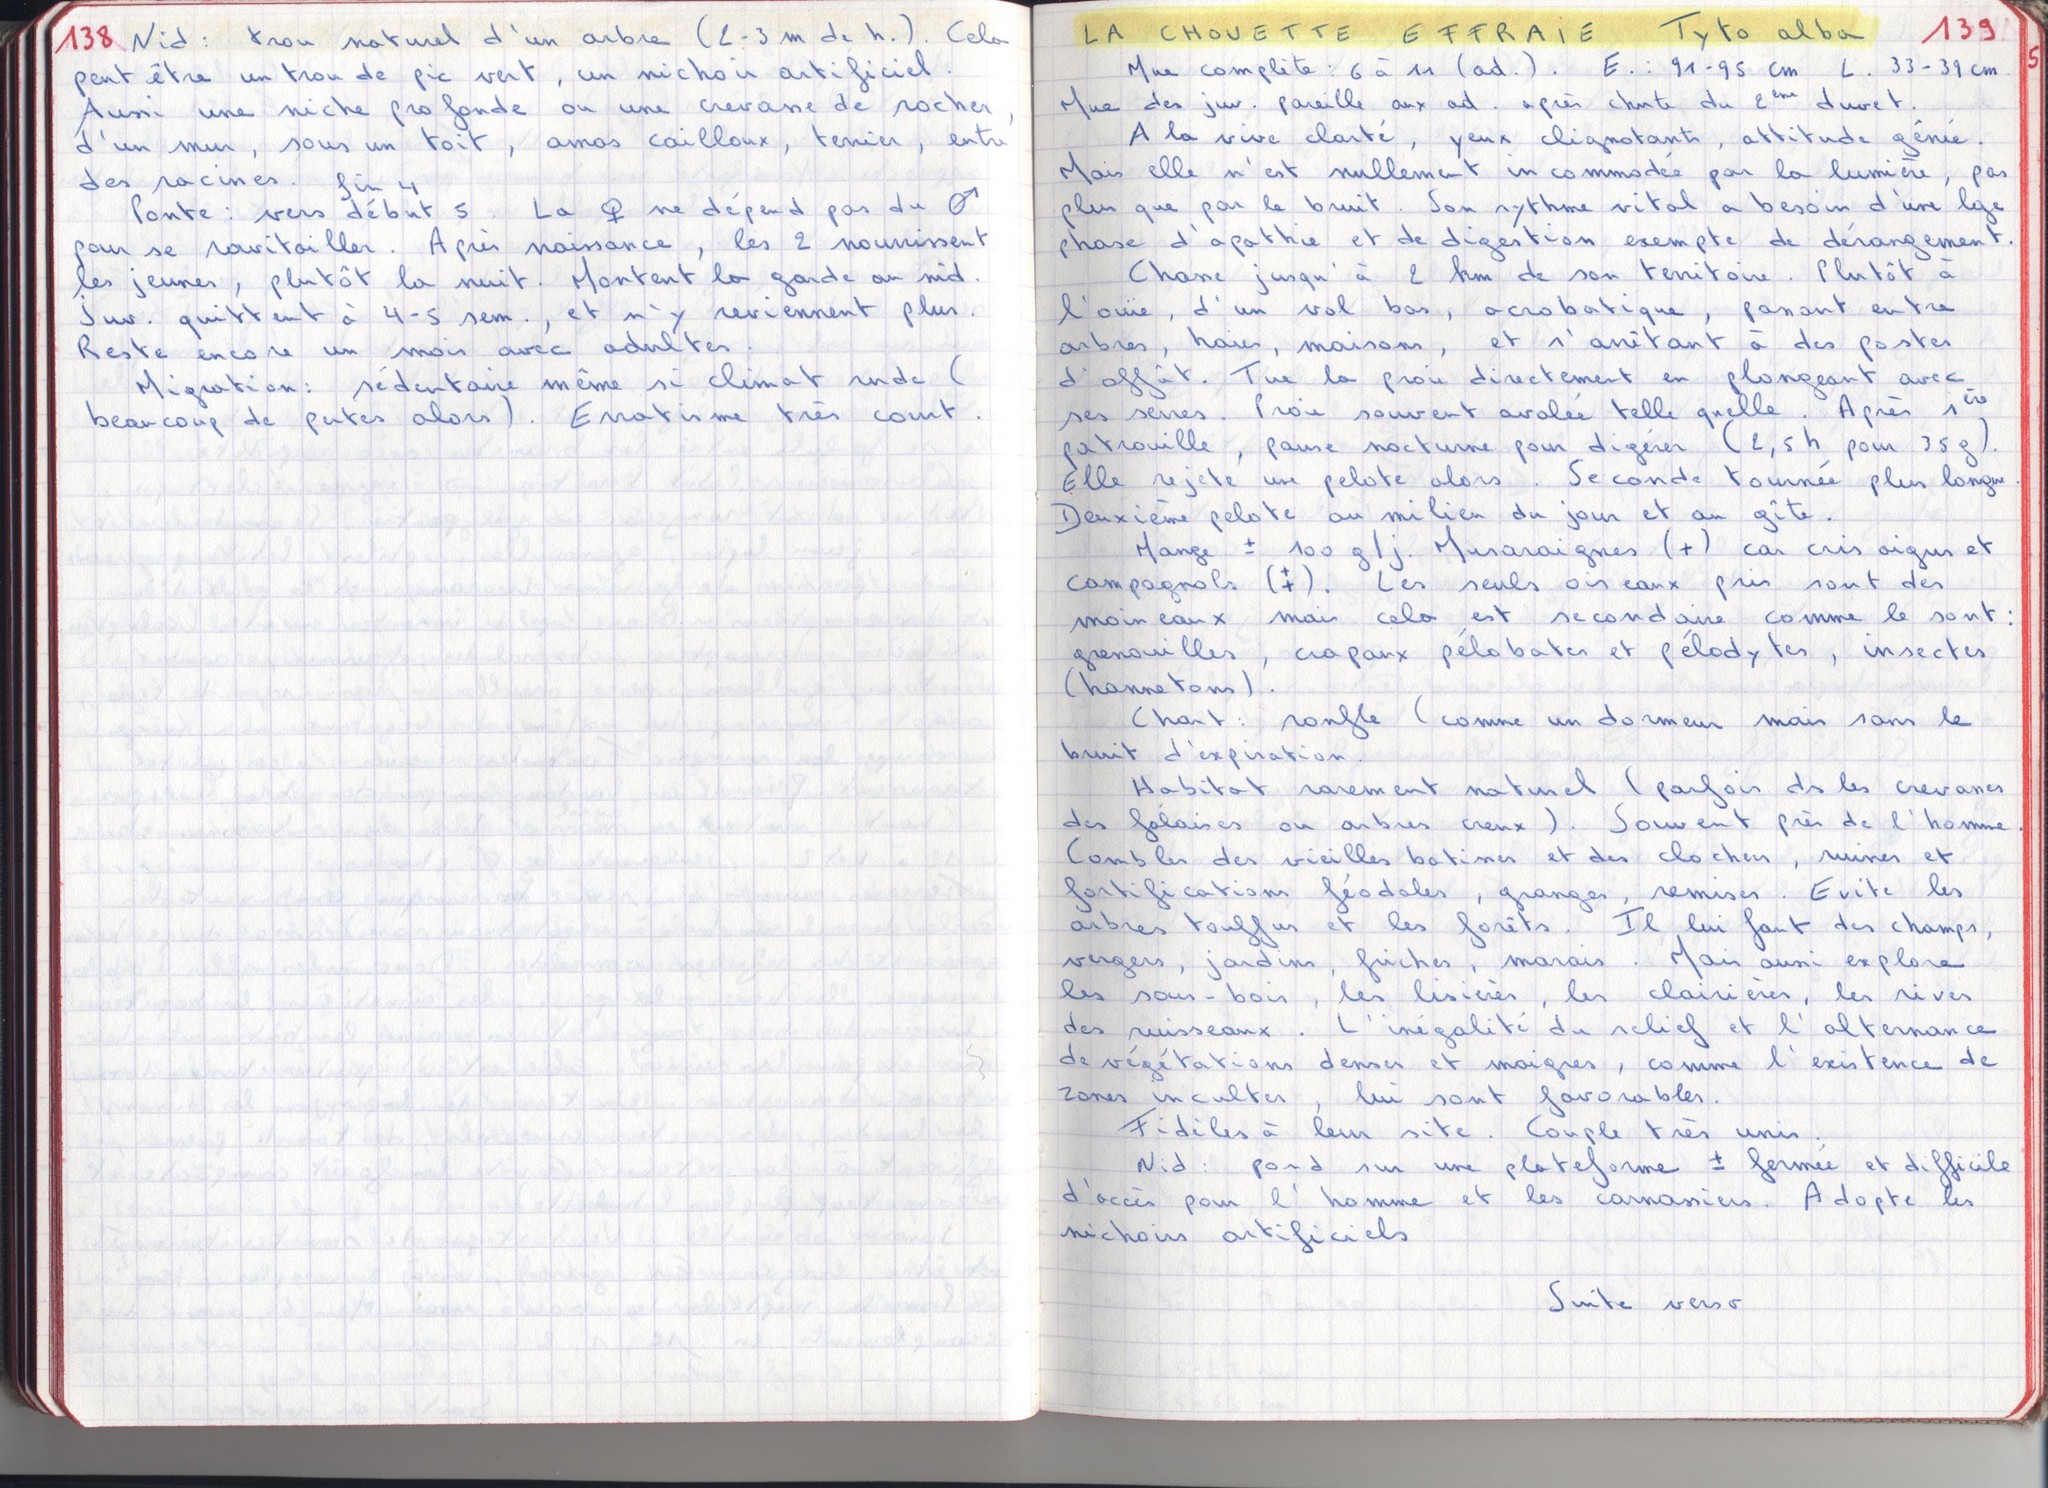 138 Nid : trou naturel d'un arbre (2-3 m de h.). Cela
peut être un trou de pic vert, un nichoir artificiel.
Aussi une niche profonde ou une crevasse de rocher,
d'un mur, sous un toit, amas cailloux, terrier, entre
des racines.
fin 4
Ponte : vers début 5. La ♀ ne dépend pas du ♂
pour se ravitailler. Après naissance, les 2 nourrissent
les jeunes, plutôt la nuit. Montent la garde au nid.
Juv. quittent à 4-5 sem., et n'y reviennent plus.
Reste encore un mois avec adultes.
Migration : sédentaire même si climat rude (
beaucoup de pertes alors). Erratisme très court.
LA CHOUETTE EFFRAIE Tyto alba 139
5
Mue complète : 6 à 11 (ad.). E. : 91-95 cm L. 33-39 cm.
Mue des juv. pareille aux ad. après chute du 2ème duvet.
A la vive clarté, yeux clignotants, attitude gênée.
Mais elle n'est nullement incommodée par la lumière, pas
plus que par le bruit. Son rythme vital a besoin d'une lge
phase d'apathie et de digestion exempte de dérangement.
Chasse jusqu'à 2 km de son territoire. Plutôt à
l'ouïe, d'un vol bas, acrobatique, passant entre
arbres, haies, maisons, et s'arrêtant à des postes
d'affût. Tue la proie directement en plongeant avec
ses serres. Proie souvent avalée telle quelle. Après 1ère
patrouille, pause nocturne pour digérer (2,5 h pour 35 g).
Elle rejete une pelote alors. Seconde tournée plus longue.
Deuxième pelote au milieu du jour et au gîte.
Mange ± 100 g/j. Musaraignes (+) car cris aigus et
campagnols (‡). Les seuls oiseaux pris sont des
moineaux mais cela est secondaire comme le sont :
grenouilles, crapaux pélobates et pélodytes, insectes
(hannetons).
Chant : ronfle (comme un dormeur mais sans le
bruit d'expiration.
Habitat rarement naturel (parfois ds les crevasses
des falaises ou arbres creux). Souvent près de l'homme.
Combles des vieilles batisses et des clochers, ruines et
fortifications féodales, granges, remises. Evite les
arbres touffus et les forêts. Il lui faut des champs,
vergers, jardins, friches, marais. Mais aussi explore
les sous-bois, les lisières, les clairières, les rives
des ruisseaux. L'inégalité du relief et l'alternance
de végétations denses et maigres, comme l'existence de
zones incultes, lui sont favorables.
Fidèles à leur site. Couple très unis.
Nid : pond sur une plateforme ± fermée et difficile
d'accès pour l'homme et les carnassiers. Adopte les
nichoirs artificiels
Suite verso